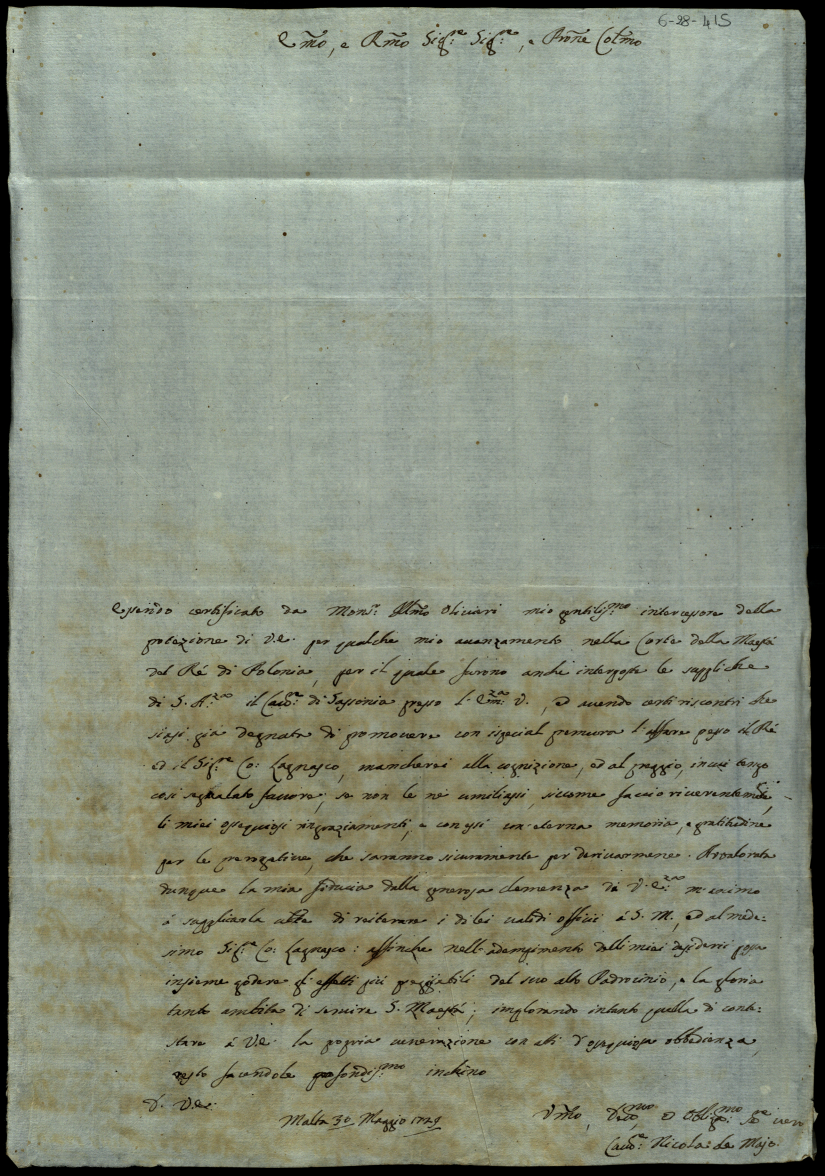 6-28-415
Emo, e Rmo Sig:re Sig:re, e Prone Colmo
Essendo certificato da Mons:r Illmo Oliviari mio gentiliss:mo intercessore della
potezione di V.E. per qualche mio avanzamento nella Corte della Maestà
del Ré di Polonia, per il quale furono anche interposte le suppliche
di S. A.za il Cav:re di Sassonia presso l'Em:za V., ed avendo certi riscontri che
siasi già degnata di promovere con ispecial premura l'affare presso il Ré
ed il Sig:re Co: Lagnasco, mancherei alla cognizione, ed al preggio, in cui tengo
così segnalato favore, se non le né umiliassi, siccome faccio riverentemte,
li miei ossequiosi ringraziamenti, e con essi un'eterna memoria, e gratitudine
per le prerogative, che saranno sicuramente per derivarmene. Avalorata
dunque la mia fiducia dalla generosa clemenza di V.E.za m'animo
á supplicarla di reiterare i di lei validi officii á S. M., ed al mede:
simo Sig:re Co: Lagnasco: affinche nell'adempimento delli miei desiderii possa
insieme godere gl'effetti più preggiabili del suo alto Padrocinio, e la gloria
tanto ambita di servire S. Maestá; implorando intanto quella di conte:
stare á V.E. la propria venerazione con atti d'ossequiosa obbedienza,
resto facendole profondis:mo inchino
D. V.E.
Malta 30 Maggio 1729
Umo, Devmo, ed Obblig:mo Se vero
Cav:re Nicola: de Majo.